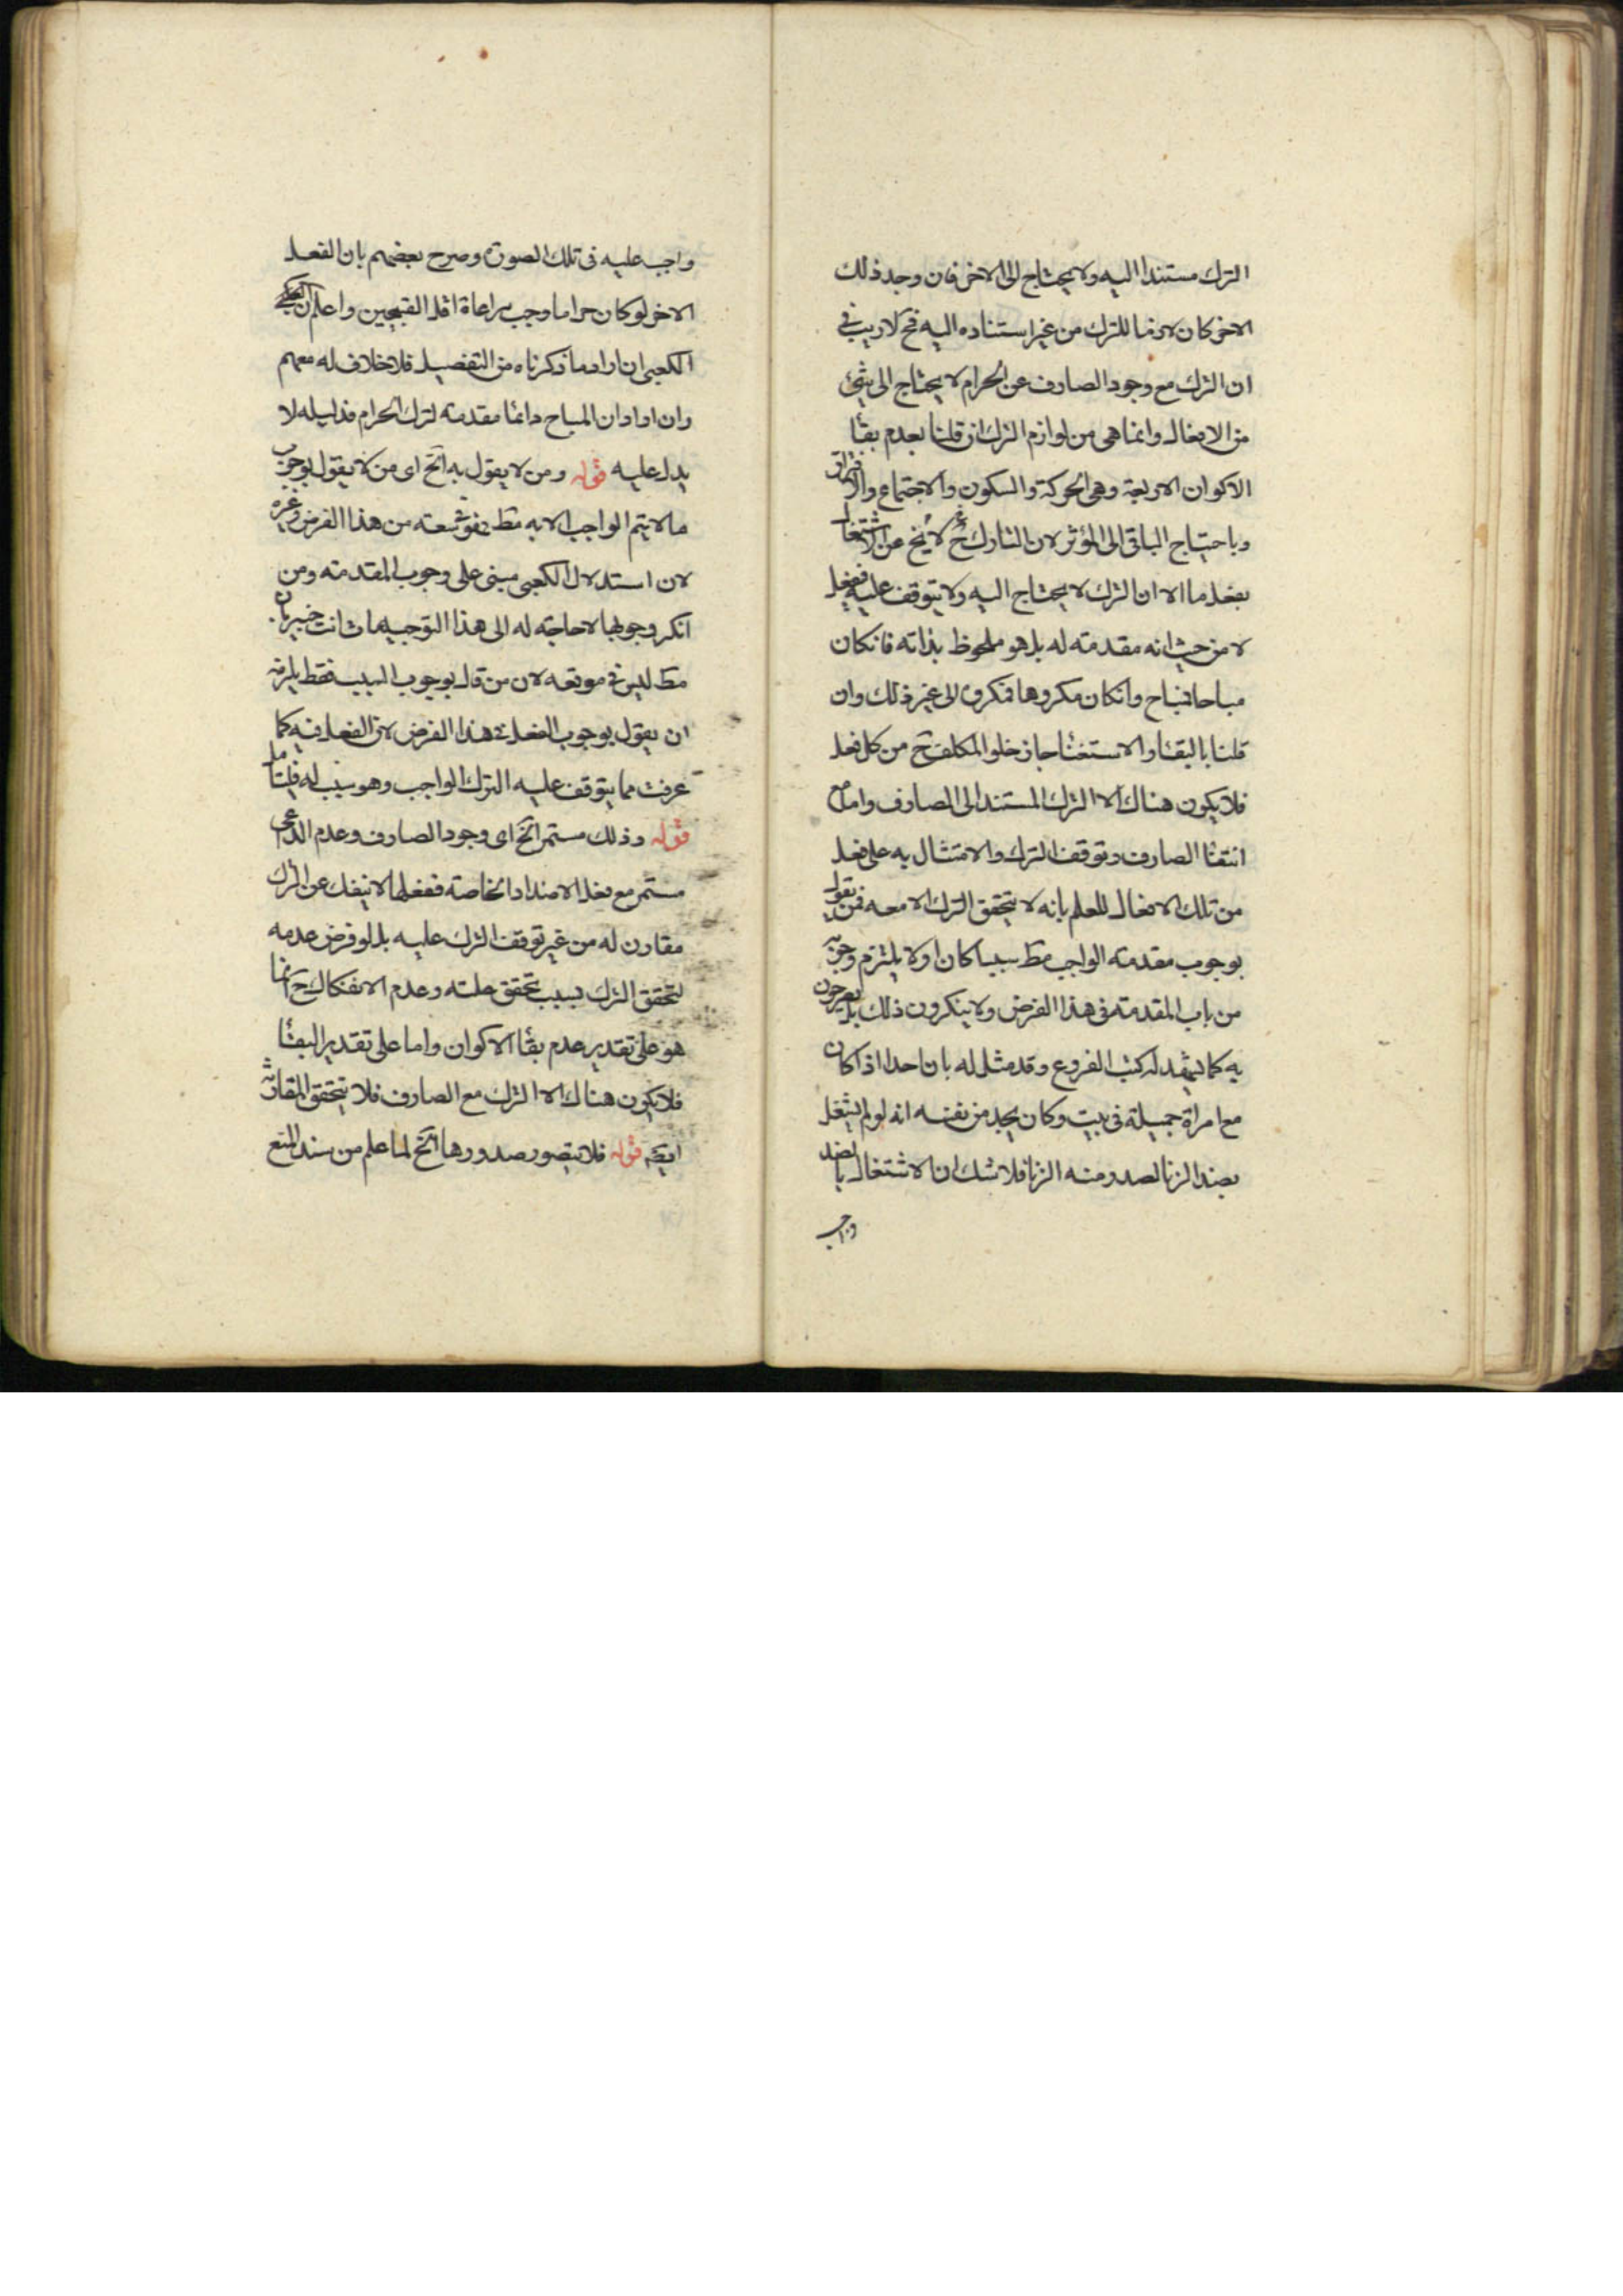 الترك مستندا اليه ولا يحتاج الى الاخر فان وجد ذلك
الاخر كان لازما للترك من غير استناده اليه فح لا ريب في
ان الترك مع وجود الصارف عن الحرام لا يحتاج الى شئ
من الافعال وانما هي من لوازم الترك ان قلنا بعدم بقاء
الاكوان الاربعة وهي الحركة والسكون والاجتماع والافتراق
وباحتياج الباقي الى المؤثر لان التارك ح لا يخ عن الاشتغال
بفعل ما الا ان الترك لا يحتاج اليه ولا يتوقف عليه ففعله
لا من حيث انه مقدمته له بل هو ملحوظ بذاته فانكان
مباحا فمباح وانكان مكروها فمكروه الى غير ذلك وان
قلنا بالبقاء والاستغناء جاز خلو المكلف ح من كل فعل
فلا يكون هناك الا الترك المستند الى الصارف واما مع
انتفاء الصارف وتوقف الترك والامتثال به على فعل
من تلك الافعال للعلم بانه لا يتحقق الترك الا معه فمن يقول
بوجوب مقدمته الواجب مط سببا كان او لا يلتزم وجوبه
من باب المقدمته في هذا الفرض ولا ينكرون ذلك بل يصرحون
به كما يشهد له كتب الفروع وقد مثل له بان احدا اذا كان
مع امراة جميلة في بيت وكان يجد من نفسه انه لو لم يشتغل
بضد الزنا لصدر منه الزنا فلا شك ان الاشتغال بالضد
واجب
واجب عليه في تلك الصورة وصرح بعضهم بان الفعل
الاخر لو كان حراما وجب مراعاة اقل القبيحين واعلم ان
الكعبي ان اراد ما ذكرناه من التفصيل فلا خلاف له معهم
وان اراد ان المباح دائما مقدمته لترك الحرام فدليله لا
يدل عليه قوله ومن لا يقول به الخ اى من لا يقول بوجوب
ما لا يتم الواجب الا به مط فهو في سعته من هذا الفرض وغيره
لان استدلال الكعبي مبنى على وجوب المقدمته ومن
انكر وجوبها لا حاجته له الى هذا التوجيه وانت خبير بان
مط ليس في موقعه لان من قال بوجوب السبب فقط يلزمه
ان يقول بوجوب الفعل في هذا الفرض لان الفعل فيه كما
عرفت مما يتوقف عليه الترك الواجب وهو سبب له فليتامل
قوله وذلك مستمر الخ اى وجود الصارف وعدم الداعى
مستمر مع فعل الاضداد الخاصة ففعلها لا ينفك عن الترك
مقارن له من غير توقف الترك عليه بل لو فرض عدمه
لتحقق الترك بسبب تحقق علته وعدم الانفكاك ح انما
هو على تقدير عدم بقاء الاكوان واما على تقدير البقاء
فلا يكون هناك الا الترك مع الصارف فلا يتحقق المقارنة
ايضا قوله فلا يتصور صدورها الخ لما علم من سند المنع